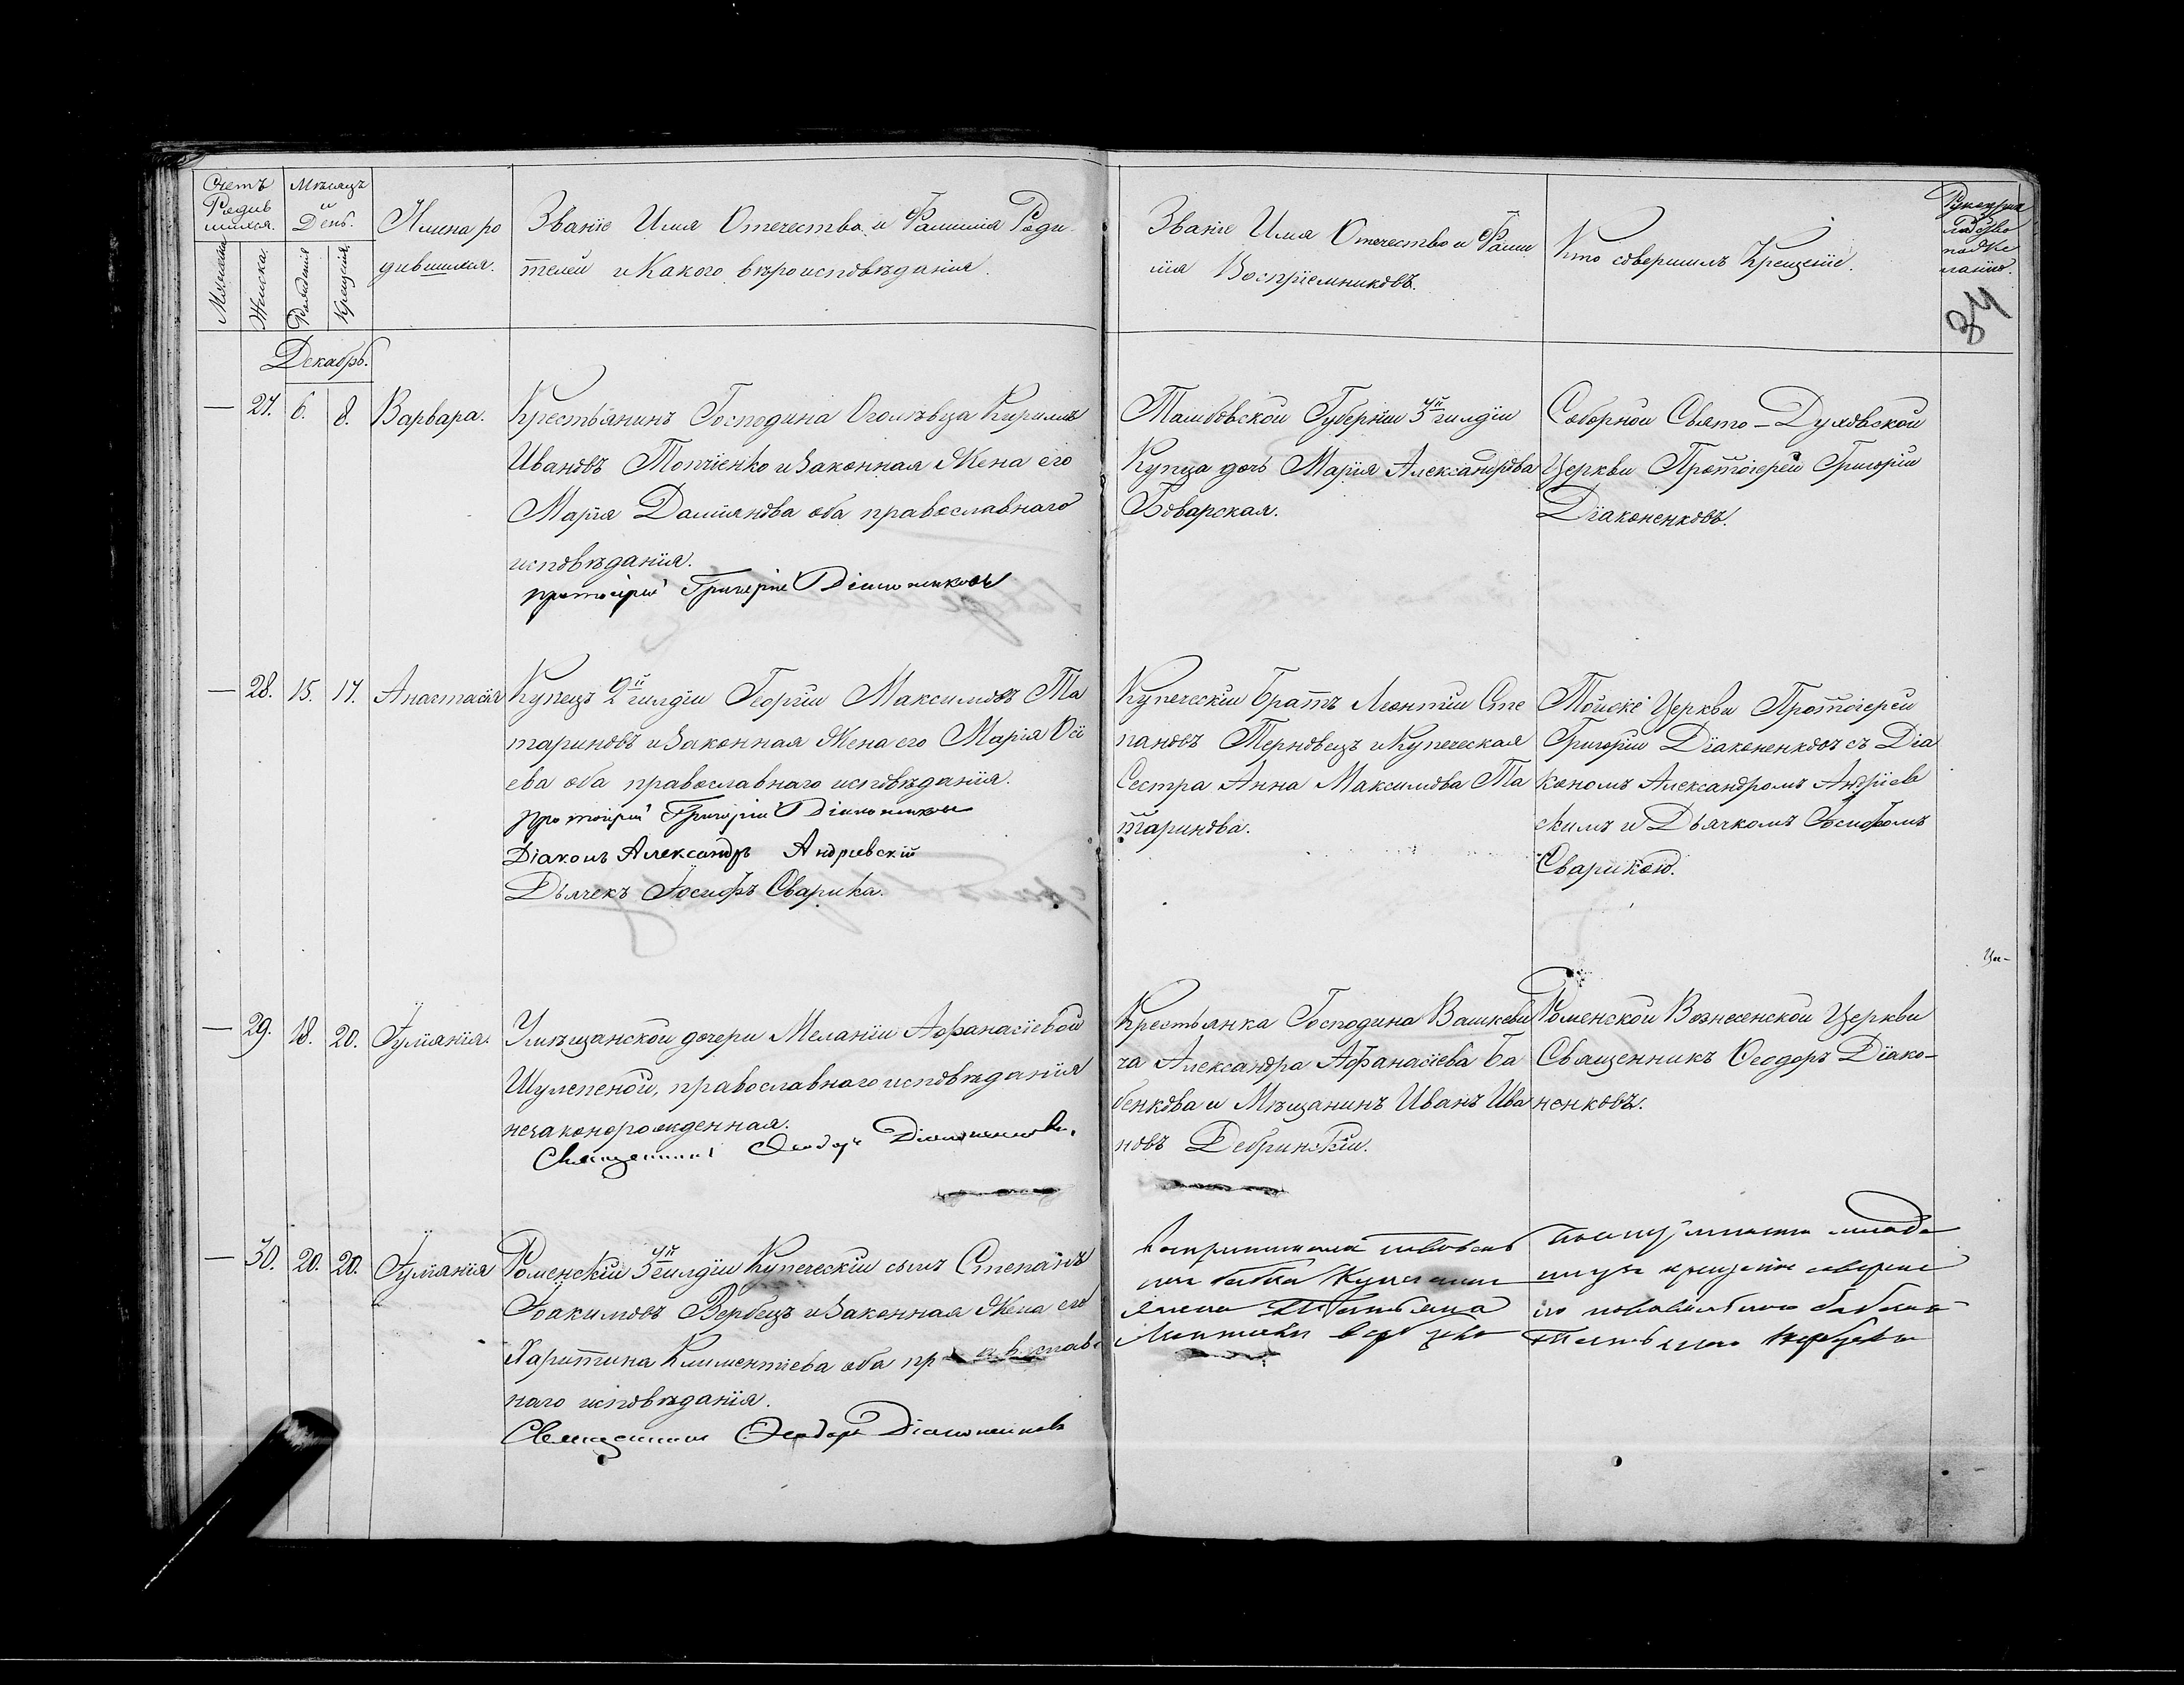 Счетъ
Родив
шихся.
Мѣсяцъ
и
День.
Имена ро
дившихся.
Званіе Имя Отечество и Фамилія Роди
телей и Какого вѣроисповѣданія.
Званіе Имя Отечество и Фами
лія Воспріемниковъ.
Кто совершилъ Крещеніе.
Женска.
Рожденія
Крещенія.
34
Декабрь.
— 27. 6. 8. Варвара.
Крестьянинъ Господина Кирилъ
Ивановъ Топчіенко и Законная Жена его
Марія Даміянова оба православнаго
исповѣданія.
протоіерей Григорій Діаконенковъ
Тамбовской Губерніи 3й гилдіи
Купца дочь Марія Александрова
Боварская.
Соборной Свято-Духовской
Церкви Протоіерей Григорій
Діаконенковъ.
— 28. 15. 17. Анастасія
Купецъ 2й гилдіи Георгій Максимовъ Та
тариновъ и Законная Жена его Марія
ева оба православнаго исповѣданія.
протоіерей Григорій Діаконенковъ
Діаконъ Александръ Андріевскій
Дьячекъ Іосифъ Сварика.
Купеческій Братъ Леонтій Сте
пановъ Терновецъ и Купеческая
Сестра Анна Максимова Та
таринова.
Тойже Церкви Протоіерей
Григорій Діаконенковъ съ Діа
кономъ Александромъ Андріев
скимъ и Дьячкомъ Іосифомъ
Сварикою.
— 29. 18. 20. Іуліанія.
У мѣщанской дочери Меланіи Афанасіевой
Шулепеной, православнаго исповѣданія
незаконорожденная.
Священникъ Ѳеодоръ Діаконенковъ.
Крестьянка Господина Вашкеви
ча Александра Афанасіева Ба
бенкова и Мѣщанинъ Иванъ Ива
новъ Дебринскій.
Роменской Вознесенской Церкви
Священникъ Ѳеодоръ Діако-
ненковъ.
— 30. 20. 20. Іуліанія
Роменскій 3й гилдіи Купеческій сынъ Степанъ
Іоакимовъ Вербецъ и Законная Жена его
Харитина Климентіева оба православ
наго исповѣданія.
Священникъ Ѳеодоръ Діаконенковъ